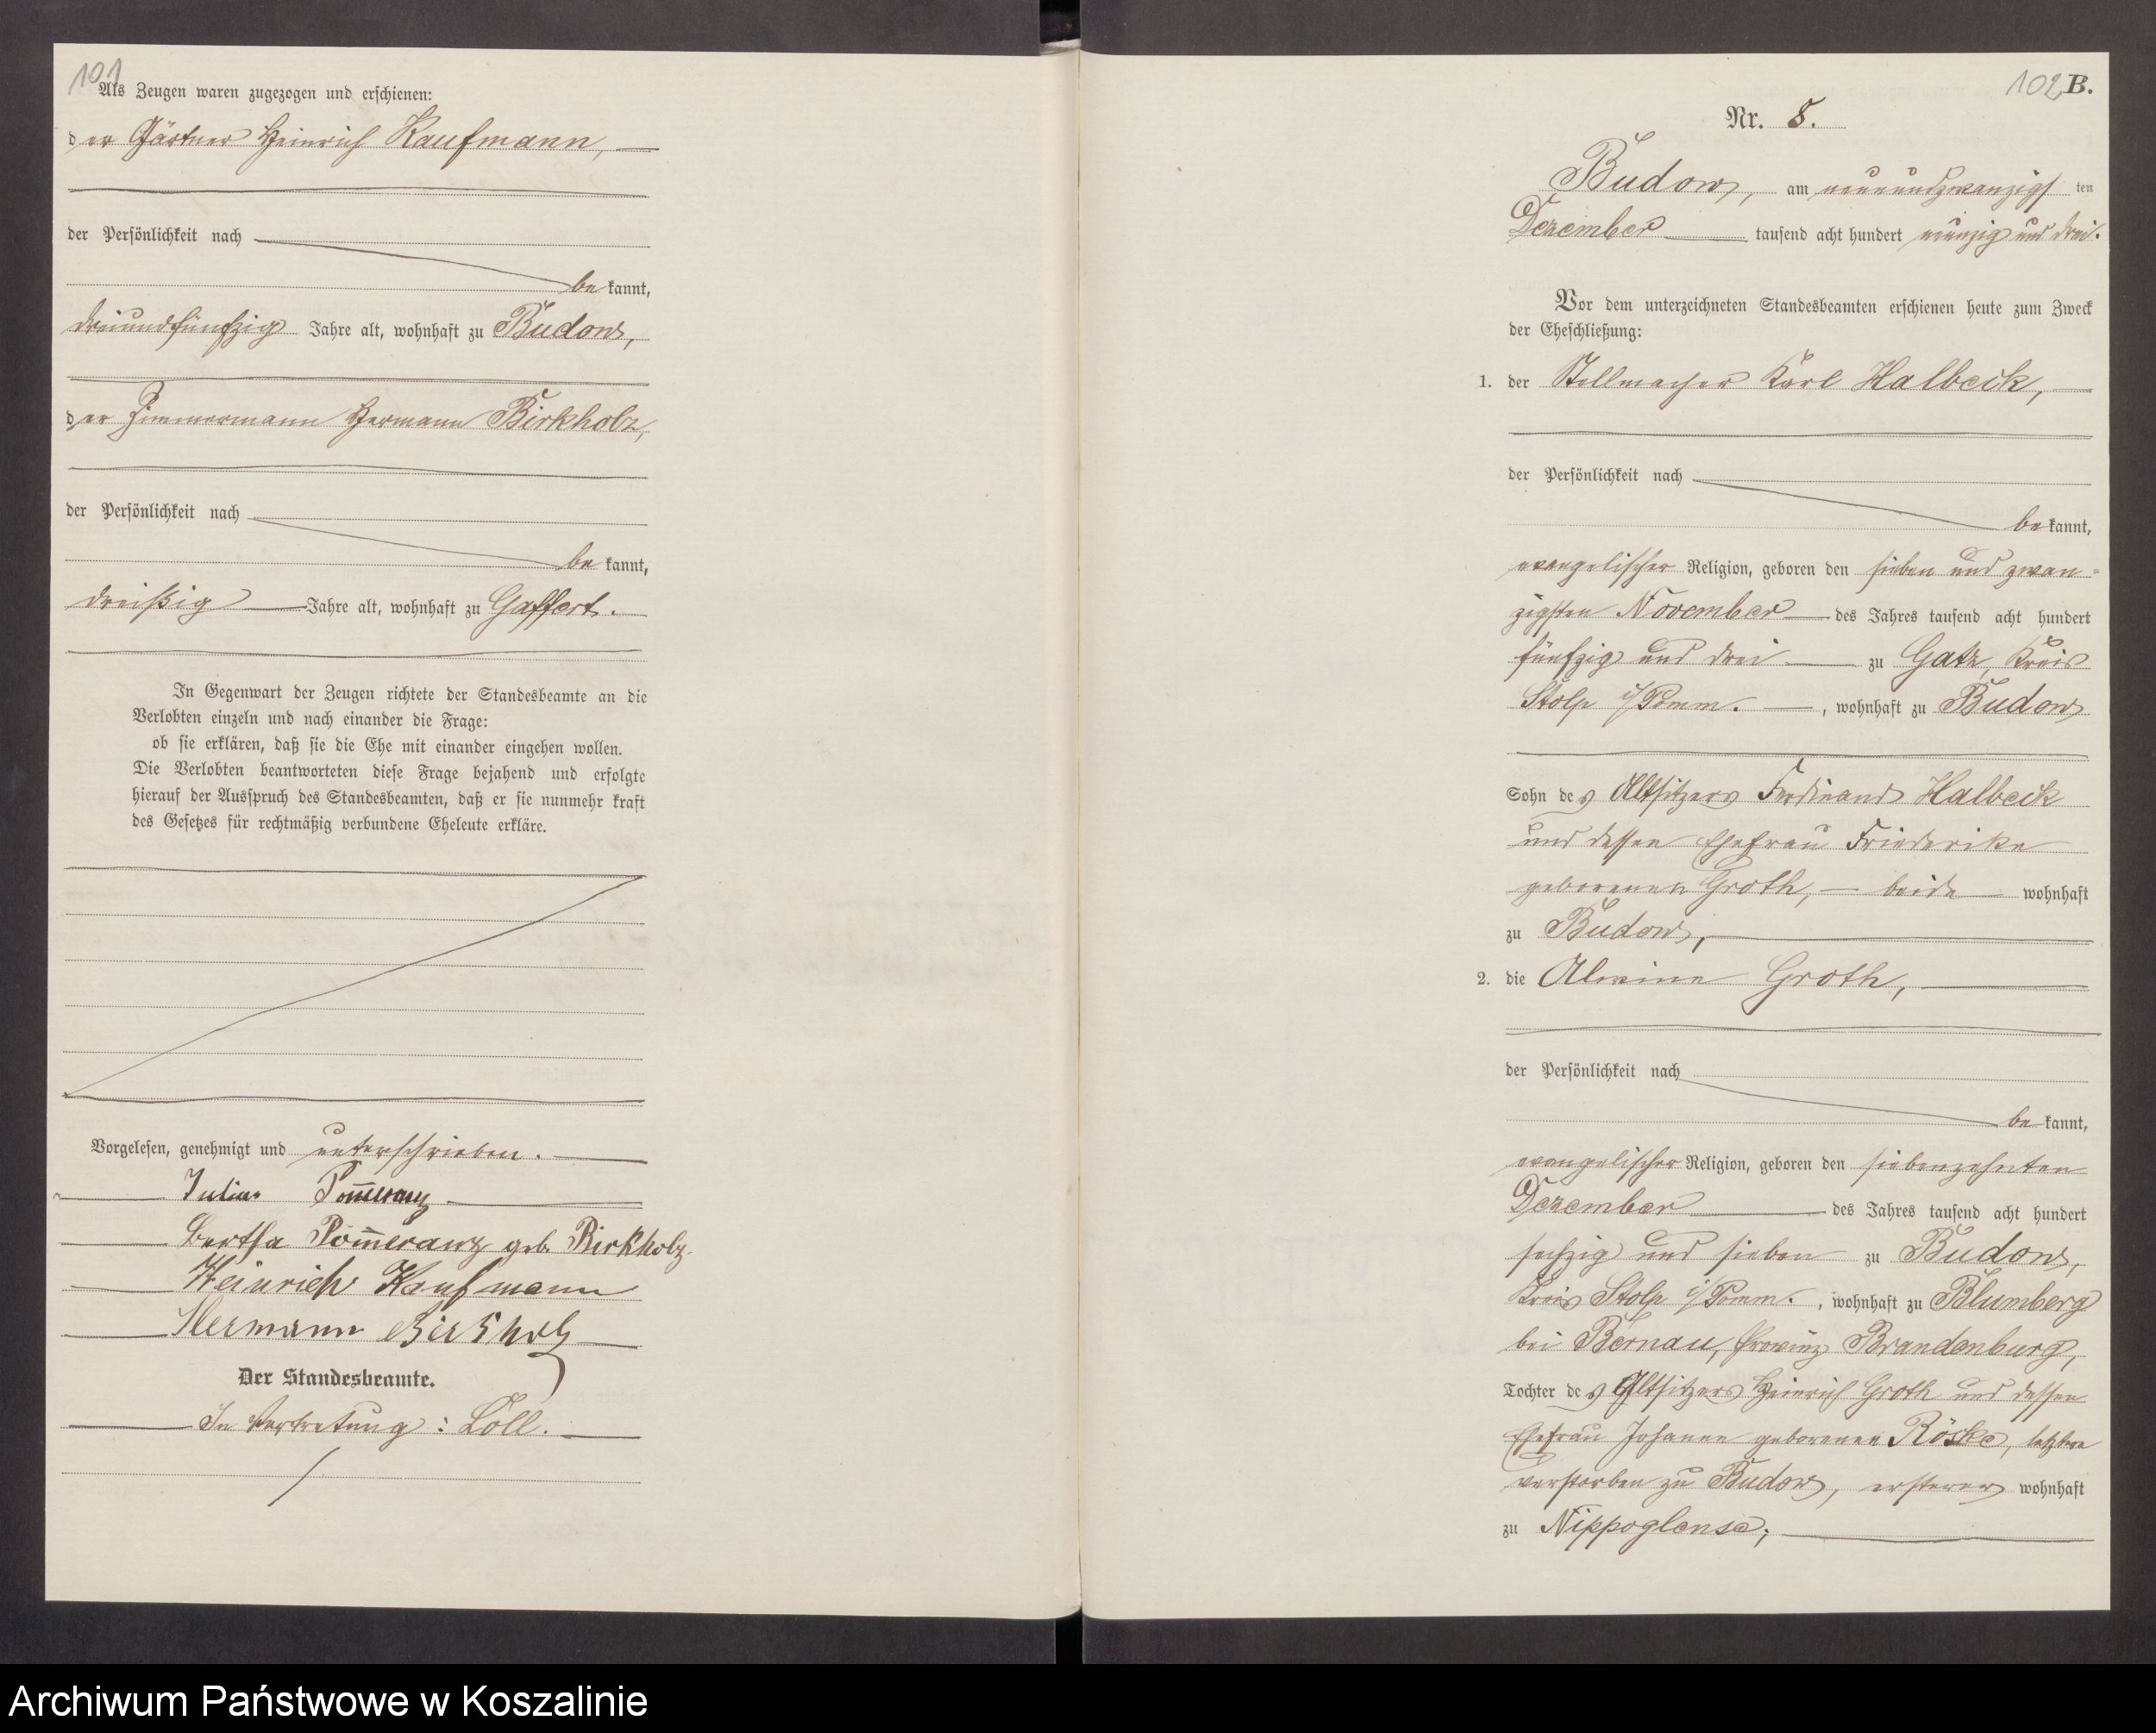 101
Als Zeugen waren zugezogen und erschienen:
der Gärtner Heinrich Kaufmann,
der Persönlichkeit nach
bekannt,
dreiundfünfzig Jahre alt, wohnhaft zu Budow,
der Zimmermann Hermann Birkholz,
der Persönlichkeit nach
bekannt,
dreißig Jahre alt, wohnhaft zu Gaffert.
In Gegenwart der Zeugen richtete der Standesbeamte an die
Verlobten einzeln und nach einander die Frage:
ob sie erklären, daß sie die Ehe mit einander eingehen wollen.
Die Verlobten beantworteten diese Frage bejahend und erfolgte
hierauf der Ausspruch des Standesbeamten, daß er sie nunmehr kraft
des Gesetzes für rechtmäßig verbundene Eheleute erkläre.
Vorgelesen, genehmigt und unterschrieben.
Julius Pom̅eranz
Bertha Pom̅eranz geb. Birkholz.
Heinrich Kaufmann
Hermann Birkholz
Der Standesbeamte.
In Vertretung: Loll.
102 B.
Nr. 8.
Budow, am neunundzwanzigsten
Dezember tausend acht hundert neunzig und drei.
Vor dem unterzeichneten Standesbeamten erschienen heute zum Zweck
der Eheschließung:
1. der Stellmacher Karl Halbeck,
der Persönlichkeit nach
bekannt,
evangelischer Religion, geboren den sieben und zwan-
zigsten November des Jahres tausend acht hundert
fünfzig und drei zu Gatz, Kreis
Stolp i/Pomm. , wohnhaft zu Budow
Sohn des Altsitzers Ferdinand Halbeck
und dessen Ehefrau Friederike
geborenen Groth, — beide wohnhaft
zu Budow,
2. die Alwine Groth,
der Persönlichkeit nach
bekannt,
evangelischer Religion, geboren den siebenzehnten
Dezember des Jahres tausend acht hundert
sechzig und sieben zu Budow,
Kreis Stolp i/Pomm. , wohnhaft zu Blumberg
bei Bernau, Provinz Brandenburg,
Tochter des Altsitzers Heinrich Groth und dessen
Ehefrau Johanne geborenen Röske, letztere
verstorben zu Budow, ersterer wohnhaft
zu Nippoglense;
Archiwum Państwowe w Koszalinie